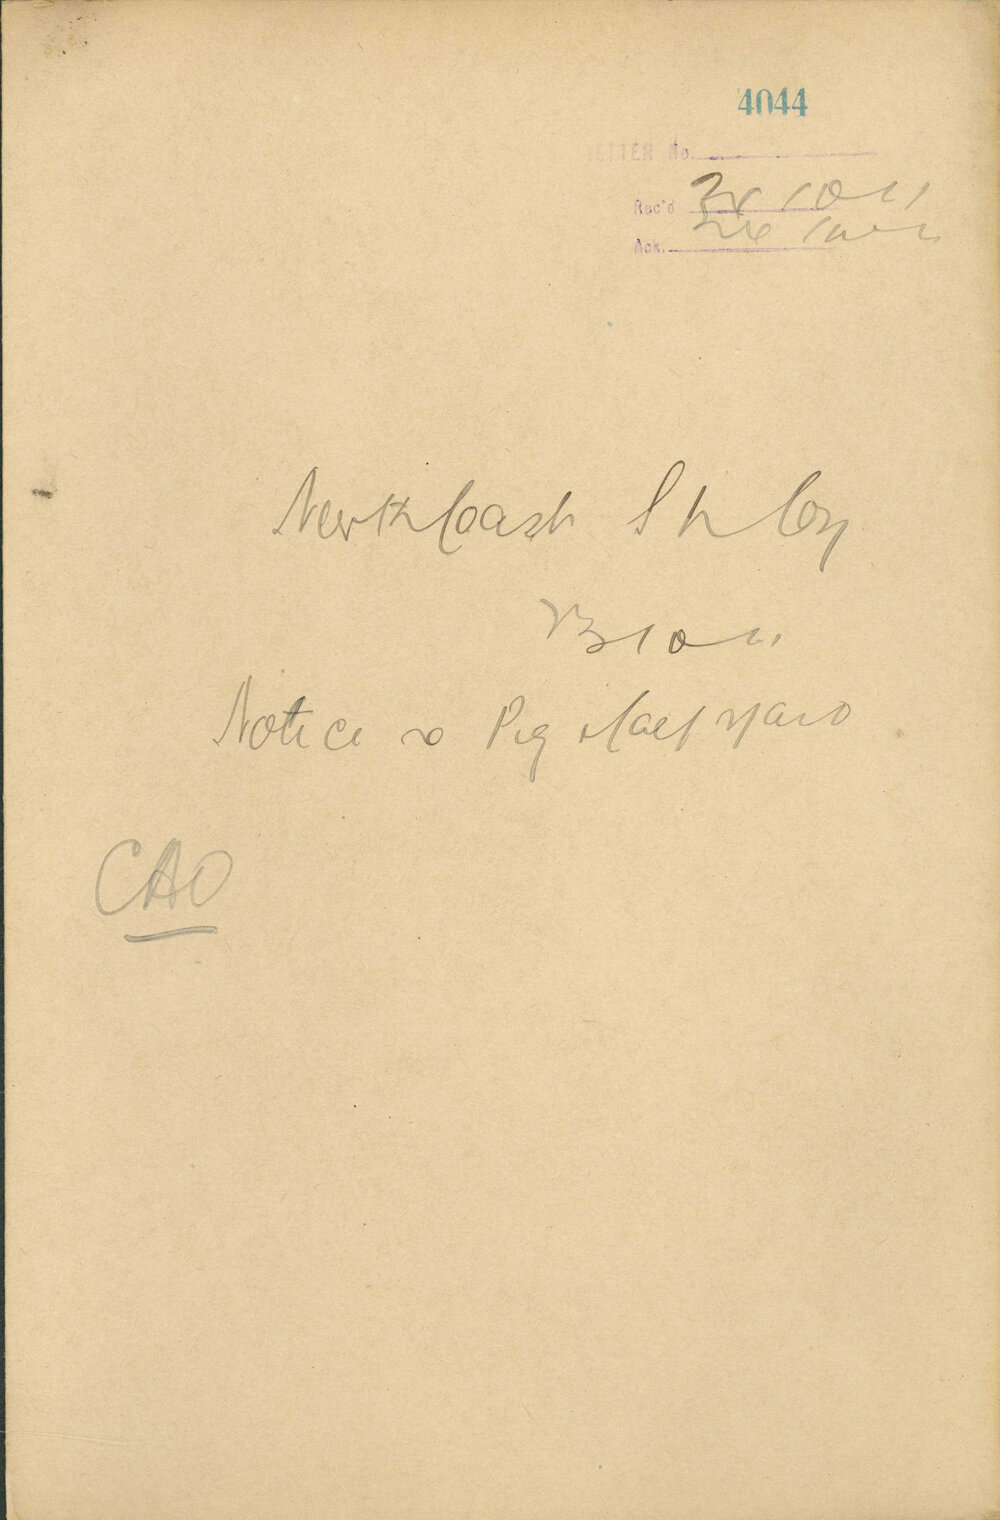 4044
LETTER No.
Rec'd 24 10 11
Ack.
North Coast S N Coy
Notice re Pig & Calf yard
CAO